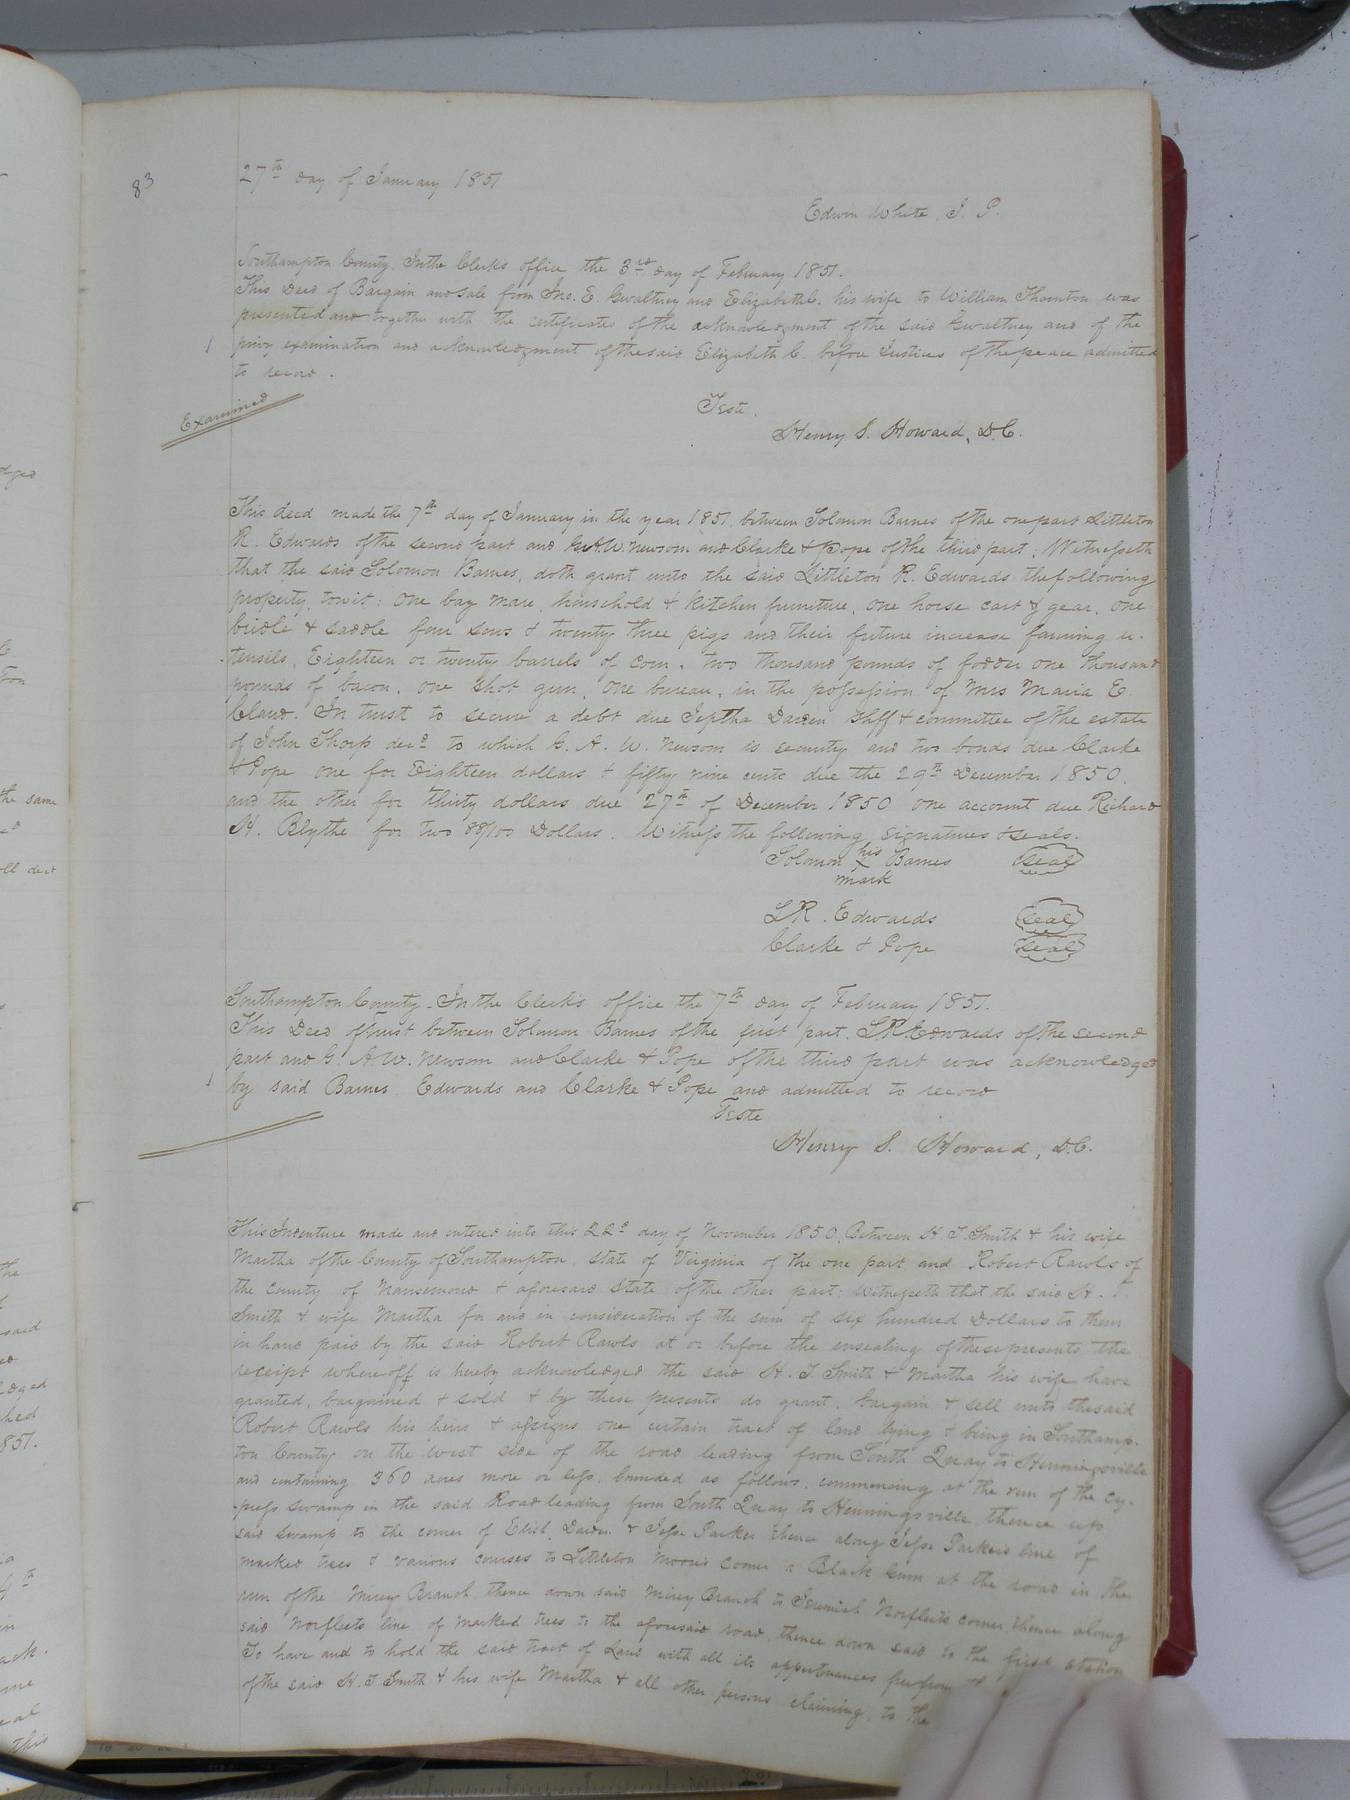 83
27th day of January 1851
Edwin White, J. P.
Southampton County. In the Clerk's office the 3rd day of February 1851.
This Deed of Bargain and Sale from Jno. E. Gwaltney and Elizabeth C. his wife to William Thornton was
presented and together with the certificates of the acknowledgment of the said Gwaltney and of the
privy examination and acknowledgment of the said Elizabeth C. before Justices of the peace admitted
to record.
Examined
Teste.
Henry S. Howard, D.C.
This deed made the 7th day of January in the year 1851, between Solomon Barnes of the one part Littleton
R. Edwards of the second part and G.A.W. Newsom and Clarke & Pope of the third part; Witnesseth
that the said Solomon Barnes, doth grant unto the said Littleton R. Edwards the following
property, towit: One bay mare, household & kitchen furniture, one horse cart & gear, one
bridle & saddle four sows & twenty three pigs and their future increase farming u-
tensils, Eighteen or twenty barrels of corn, two thousand pounds of fodder one thousand
pounds of bacon, one shot gun, one bureau, in the possession of Mrs Maria E.
Claud. In trust to secure a debt due Jeptha Darden Shff & committee of the estate
of John Thorp decd to which G. A. W. Newsom is security and two bonds due Clarke
& Pope one for Eighteen dollars & fifty nine cents due the 29th December 1850,
and the other for thirty dollars due 27th of December 1850 one account due Richard
H. Blythe for two 88/100 Dollars. Witness the following signatures & seals.
Solomon his x mark Barnes seal
L.R. Edwards seal
Clarke & Pope seal
Southampton County. In the Clerk's office the 7th day of February 1851.
This Deed of Trust between Solomon Barnes of the first part, L.R. Edwards of the second
part and G. A. W. Newsom and Clarke & Pope of the third part was acknowledged
by said Barnes, Edwards and Clarke & Pope and admitted to record
Teste
Henry S. Howard, D.C.
This Indenture made and entered into this 22d day of November 1850, Between H. T. Smith & his wife
Martha of the County of Southampton, State of Virginia of the one part and Robert Rawls of
the County of Nansemond & aforesaid State of the other part; witnesseth that the said H. T.
Smith & wife Martha for and in consideration of the sum of six hundred Dollars to them
in hand paid by the said Robert Rawls at or before the ensealing of these presents the
receipt whereoff is hereby acknowledged the said H. T. Smith & Martha his wife have
granted, bargained & sold & by these presents do grant, bargain & sell unto the said
Robert Rawls his heirs & assigns one certain tract of land lying & being in Southamp-
ton County on the west side of the road leading from South Quay to Henningsville
and containing 360 acres more or less, bounded as follows: commencing at the run of the Cy-
press swamp in the said Road leading from South Quay to Henningsville thence up
said swamp to the corner of Elish. Darden & Jesse Parker thence along Jesse Parkers line of
marked trees & various courses to Littleton Moore's corner a Black Gum at the road in the
run of the Mirey Branch thence down said Mirey Branch to Jeremiah Norfleets corner thence along
said Norfleets line of marked trees to the aforesaid road, thence down said to the first station
To have and to hold the said tract of Land with all its appertenances free from
of the said H. T. Smith & his wife Martha & all other persons claiming, to the